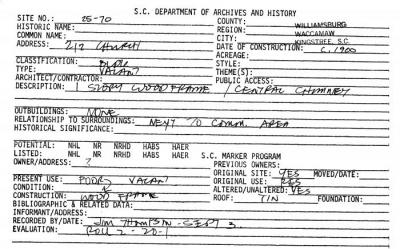 S.C. DEPARTMENT OF ARCHIVES AND HISTORY
SITE NO.: 25-70 COUNTY: WILLIAMSBURG
HISTORIC NAME: REGION: WACCAMAW
COMMON NAME: CITY: KINGSTREE, S.C.
ADDRESS: 212 CHURCH DATE OF CONSTRUCTION: C. 1900
ACREAGE:
CLASSIFICATION: BLDG STYLE:
TYPE: VACANT THEME(S):
ARCHITECT/CONTRACTOR: PUBLIC ACCESS:
DESCRIPTION: 1 STORY WOOD FRAME / CENTRAL CHIMNEY
OUTBUILDINGS: NONE
RELATIONSHIP TO SURROUNDINGS: NEXT TO COMM. AREA
HISTORICAL SIGNIFICANCE:
POTENTIAL: NHL NR NRHD HABS HAER
LISTED: NHL NR NRHD HABS HAER S.C. MARKER PROGRAM
OWNER/ADDRESS: ? PREVIOUS OWNERS:
ORIGINAL SITE: YES MOVED/DATE:
PRESENT USE: POOR, VACANT ORIGINAL USE: RES
CONDITION: ALTERED/UNALTERED: YES
CONSTRUCTION: WOOD FRAME ROOF: TIN FOUNDATION:
BIBLIOGRAPHIC & RELATED DATA:
INFORMANT/ADDRESS:
RECORDED BY/DATE: JIM THOMPSON - SEPT 3
EVALUATION: ROLL 2 - 20